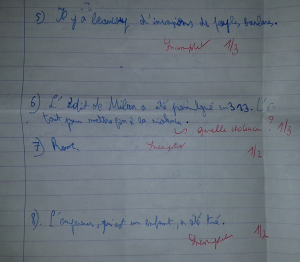 5) Il y a beaucoup d'invasions de peuples barbares.
Incomplet 1/3
6) L'édit de Milan a été promulgué en 313.
tout pour mettre fin à la violence.
quelle violence ? 1/3
7) Rome.
Incomplet
1/2
8) L'empereur, qui est un enfant, a été tué.
Incomplet 1/2